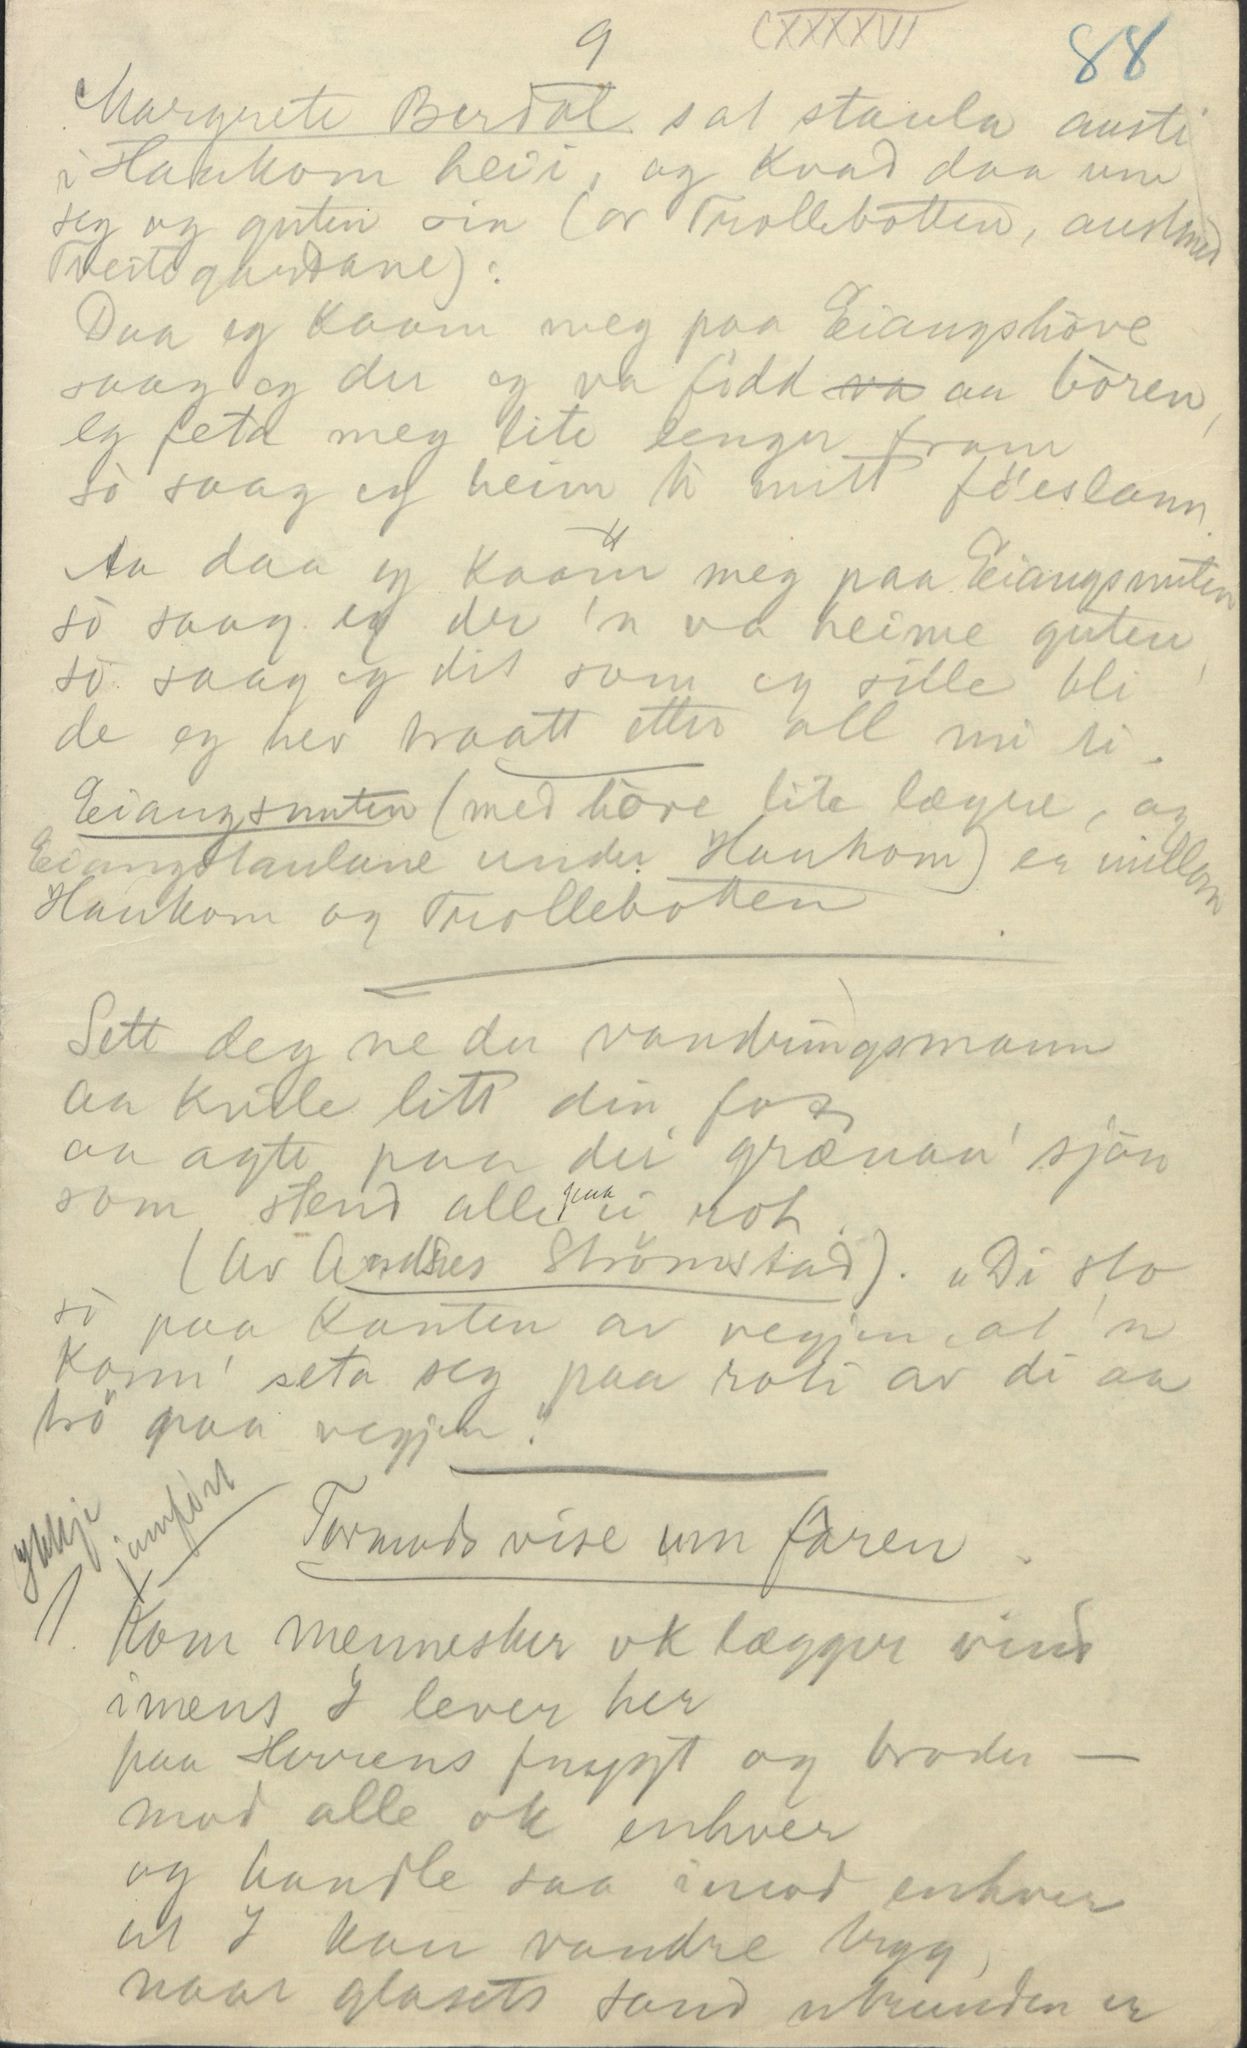 9 CXXXXVI 88
Margrete Berdal sat staula austi
i Haukom heii, og kvad daa um
seg og guten sin (or Trollebotten, austmed
Tveitegardane):
Daa eg kaam meg paa Eiangshöve
saag eg der eg va född va aa bören,
eg feta meg lite lenger fram
sò saag eg heim ti mitt fö'eslann.
Aa daa eg kaam meg paa Eiangsnuten
sò saag eg der 'n va heime guten,
sò saag eg dit som eg sille bli
de eg hev traatt etter all mi ti.
Eiangsnuten (med höve lite lægre, og
Eiangstaulane under Haukom) er millom
Haukom og Trollebotten.
Sett deg ne du vandringsmann
aa kvile litt din fot
aa agte paa dei grænan' sjön
som stend alle paa ei rot.
(Av Andres Strömstad). "Di sto
sò paa kanten av vegjen, at 'n
konn' seta seg paa roti av di aa
trö paa vegjen."
ykkje jamfört
Tormods vise um faren.
1. Kom mennesker ok lægger vind
imens I lever her
paa Herrens frygt og broder —
mod alle ok enhver
og handle saa imod enhver
at I kan vandre tryg,
naar glasets sand utrunden er